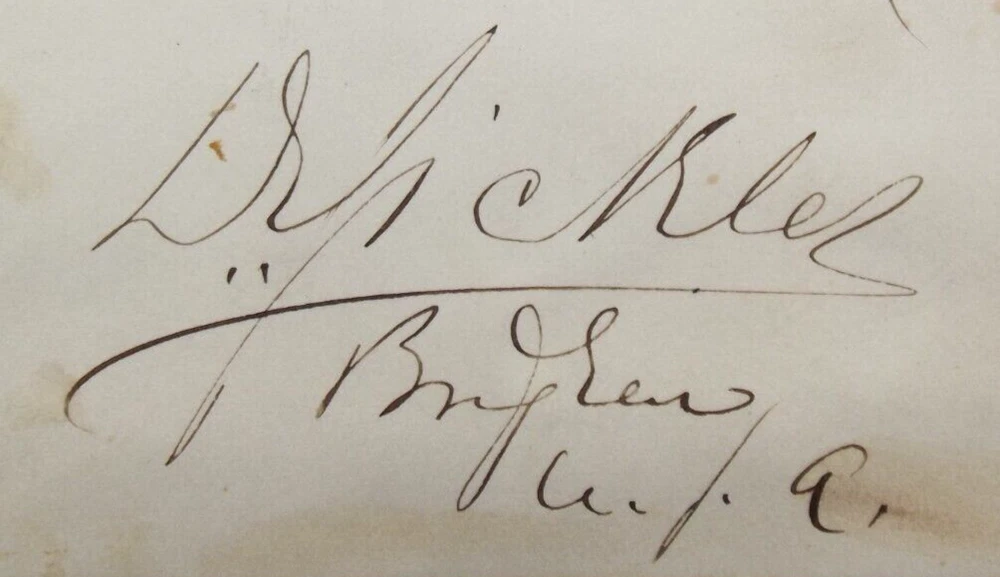 D E Sickles
Brig Gen
U. S. A.